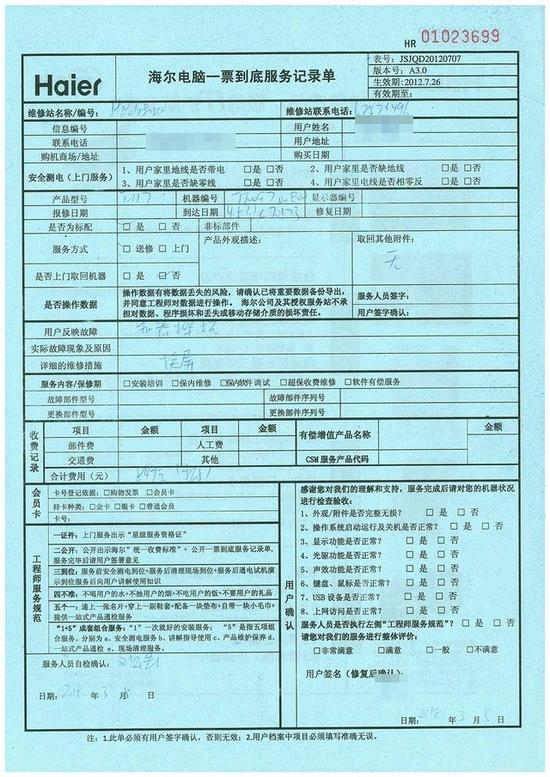 HR 01023699
Haier
海尔电脑一票到底服务记录单
表号：JSJQD20120707
版本号：A3.0
生效期：2012.7.26
有效期至：
维修站名称/编号：
维修站联系电话：
信息编号
用户姓名
联系电话
用户地址
购机商场/地址
购买日期
安全测电（上门服务）
1、用户家里地线是否带电 □是 □否
2、用户家里是否缺地线 □是 □否
3、用户家里是否缺零线 □是 □否
4、用户家里电线是否相零反 □是 □否
产品型号
机器编号
显示器编号
报修日期
到达日期
修复日期
是否为标配 □是 □否
非标部件
服务方式 □送修 □上门
产品外观描述：
取回其他附件：
无
是否上门取回机器 □是 □否
是否操作数据
操作数据有将数据丢失的风险，请确认已将重要数据备份导出，
并同意工程师对数据进行操作。海尔公司及其授权服务站不承
担对数据、程序损坏和丢失或移动存储介质的损坏责任。
服务人员签字：
用户确认签字：
用户反映故障
实际故障现象及原因
详细的维修措施 换屏
服务内容/保修期 □安装培训 □保内维修 □保内软件调试 □超保收费维修 □软件有偿服务
故障部件型号
故障部件序列号
更换部件型号
更换部件序列号
收费记录
项目 金额 项目 金额
有偿增值产品名称
部件费 人工费
交通费 其他
CSM服务产品代码
合计费用（元）
会员卡
卡号登记依据：□购物发票 □会员卡
持卡种类：□金卡 □银卡 □普通会员
卡号：
工程师服务规范
一证件：上门服务出示“星级服务资格证”
二公开：公开出示海尔“统一收费标准”+ 公开一票到底服务记录单，
服务完毕后请用户签署意见
三到位：服务前安全测电到位+服务后清理现场到位+服务后通电试机演
示到位服务后向用户讲解使用知识
四不准：不喝用户的水+不抽用户的烟+不吃用户的饭+不要用户的礼品
五个一：递上一张名片+穿上一副鞋套+配备一块垫布+自带一块小毛巾+
提供一站式产品通检服务
“1+5”成套组合服务：“1”一次就好的安装服务；“5”是指五项组
合服务，分别为a、安全测电服务b、讲解指导使用c、产品维护保养d、
一站式产品通检 e、现场清理服务。
服务人员自检确认：
日期： 年 3 月
用户确认
感谢您对我们的理解和支持，服务完成后请对您的机器状况
进行检查确认：
1、外观/附件是否完整无损？ □ 是 □ 否
2、操作系统启动运行及关机是否正常？ □ 是 □ 否
3、显示功能是否正常？ □ 是 □ 否
4、光驱功能是否正常？ □ 是 □ 否
5、声效功能是否正常？ □ 是 □ 否
6、键盘、鼠标是否正常？ □ 是 □ 否
7、USB设备是否正常？ □ 是 □ 否
8、上网访问是否正常？ □ 是 □ 否
服务人员是否执行左侧“工程师服务规范”？ □ 是 □ 否
请您对我们的服务进行整体评价：
□非常满意 □满意 □一般 □不满意
用户签字（修复后确认）：
日期： 年 3 月 5 日
注：1.此单必须有用户签字确认，否则无效；2.用户档案中项目必须填写准确无误。